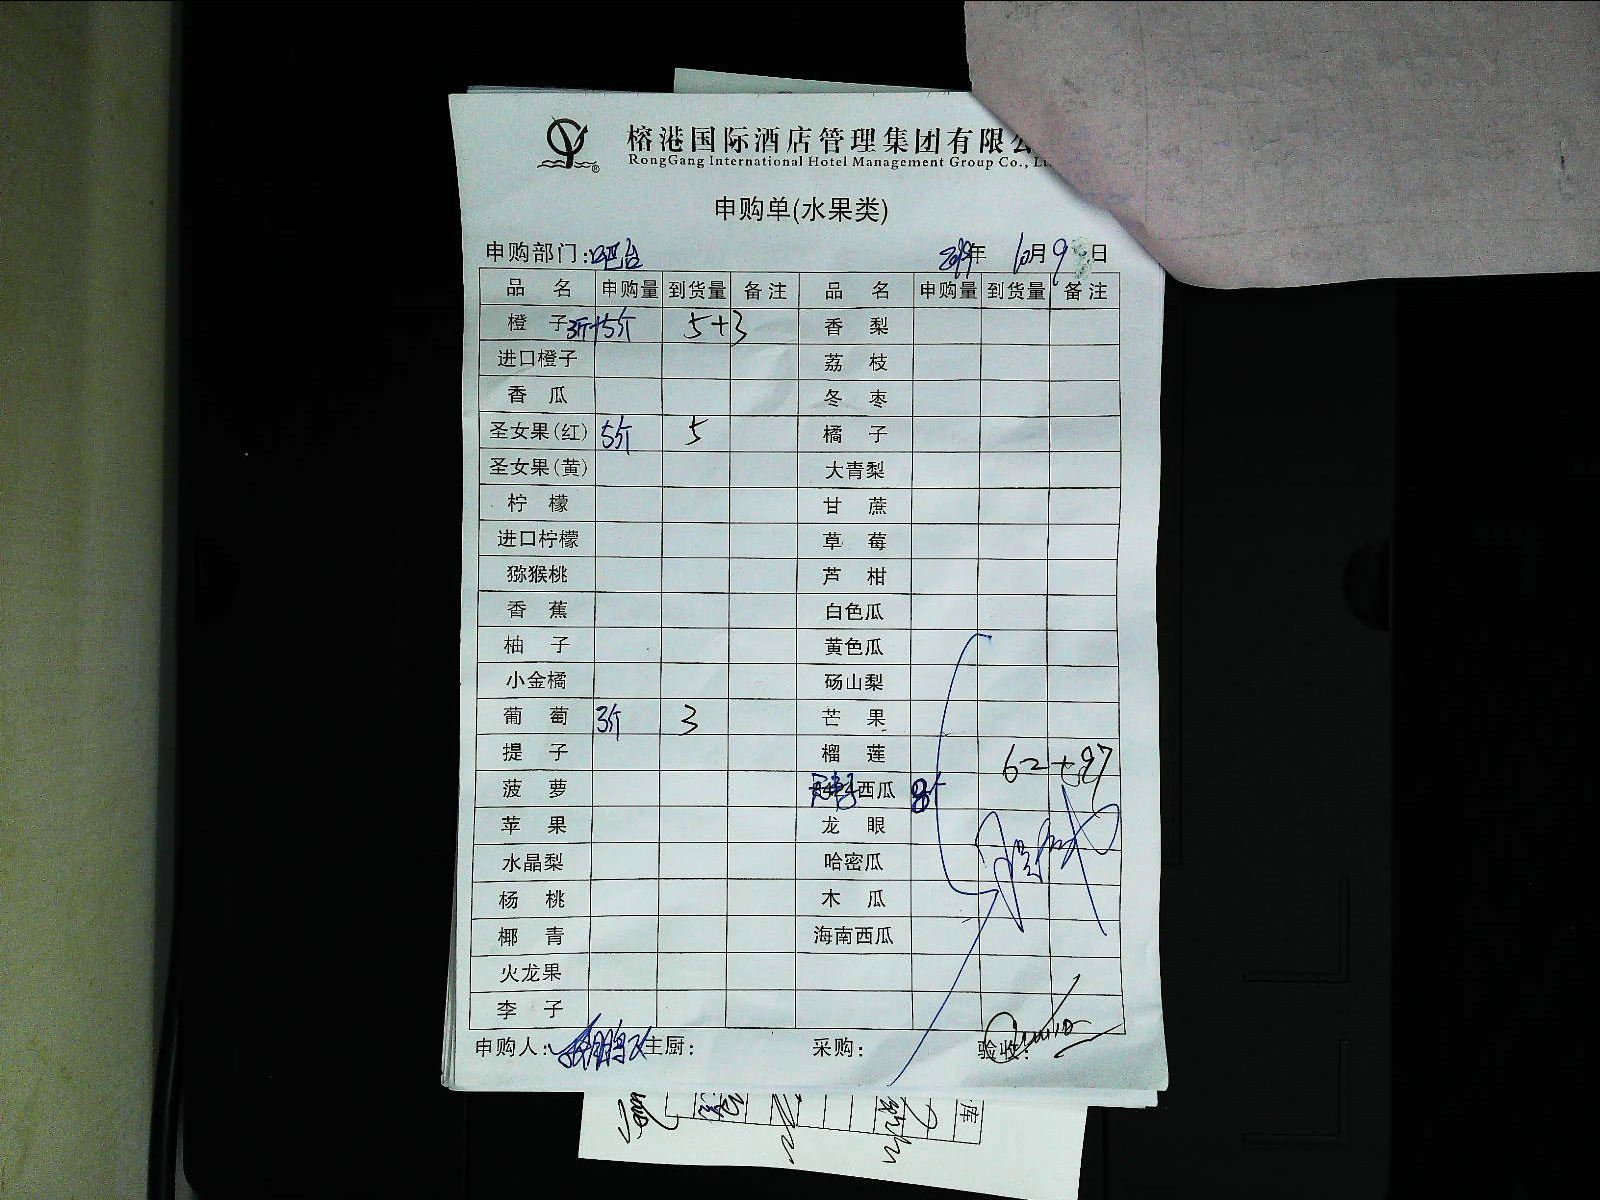 榕港国际酒店管理集团有限公
RongGang International Hotel Management Group Co., L
申购单(水果类)
申购部门:吧台 2019年 10月 9日
品 名 申购量 到货量 备注 品 名 申购量 到货量 备注
橙 子 3斤+5斤 5+3 香 梨
进口橙子 荔 枝
香 瓜 冬 枣
圣女果(红) 5斤 5 橘 子
圣女果(黄) 大青梨
柠 檬 甘 蔗
进口柠檬 草 莓
猕猴桃 芦 柑
香 蕉 白色瓜
柚 子 黄色瓜
小金橘 砀山梨
葡 萄 3斤 3 芒 果
提 子 榴 莲 62+97
菠 萝 西瓜 8个
苹 果 龙 眼
水晶梨 哈密瓜
杨 桃 木 瓜
椰 青 海南西瓜
火龙果
李 子
申购人: 主厨: 采购: 验收:
库